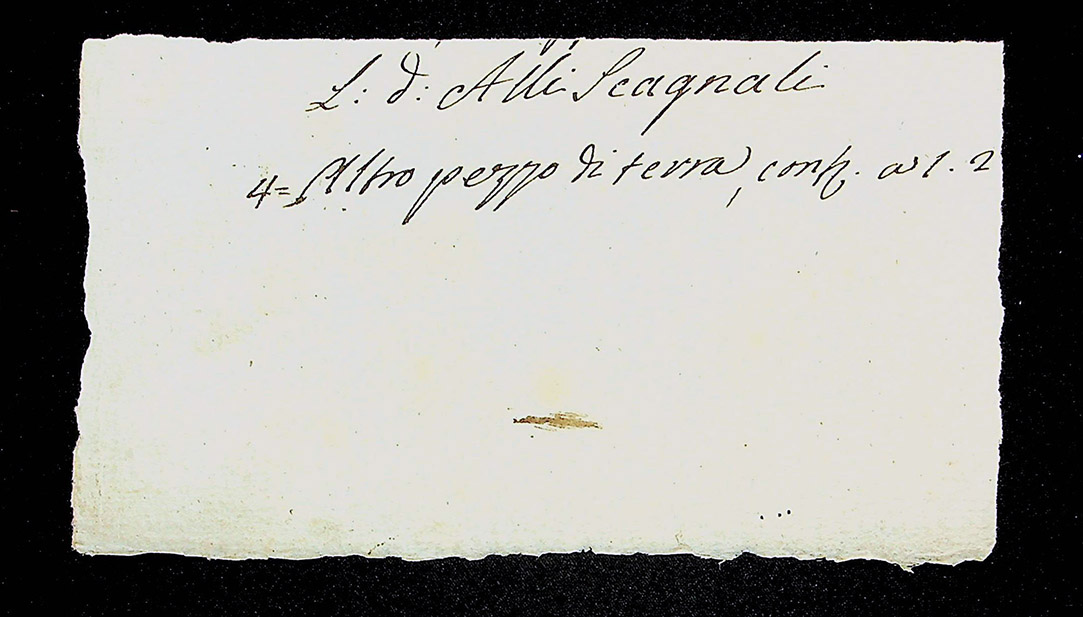 L: d: Alli Scagnali
4= Altro pezzo di terra, conf. a 1. 2